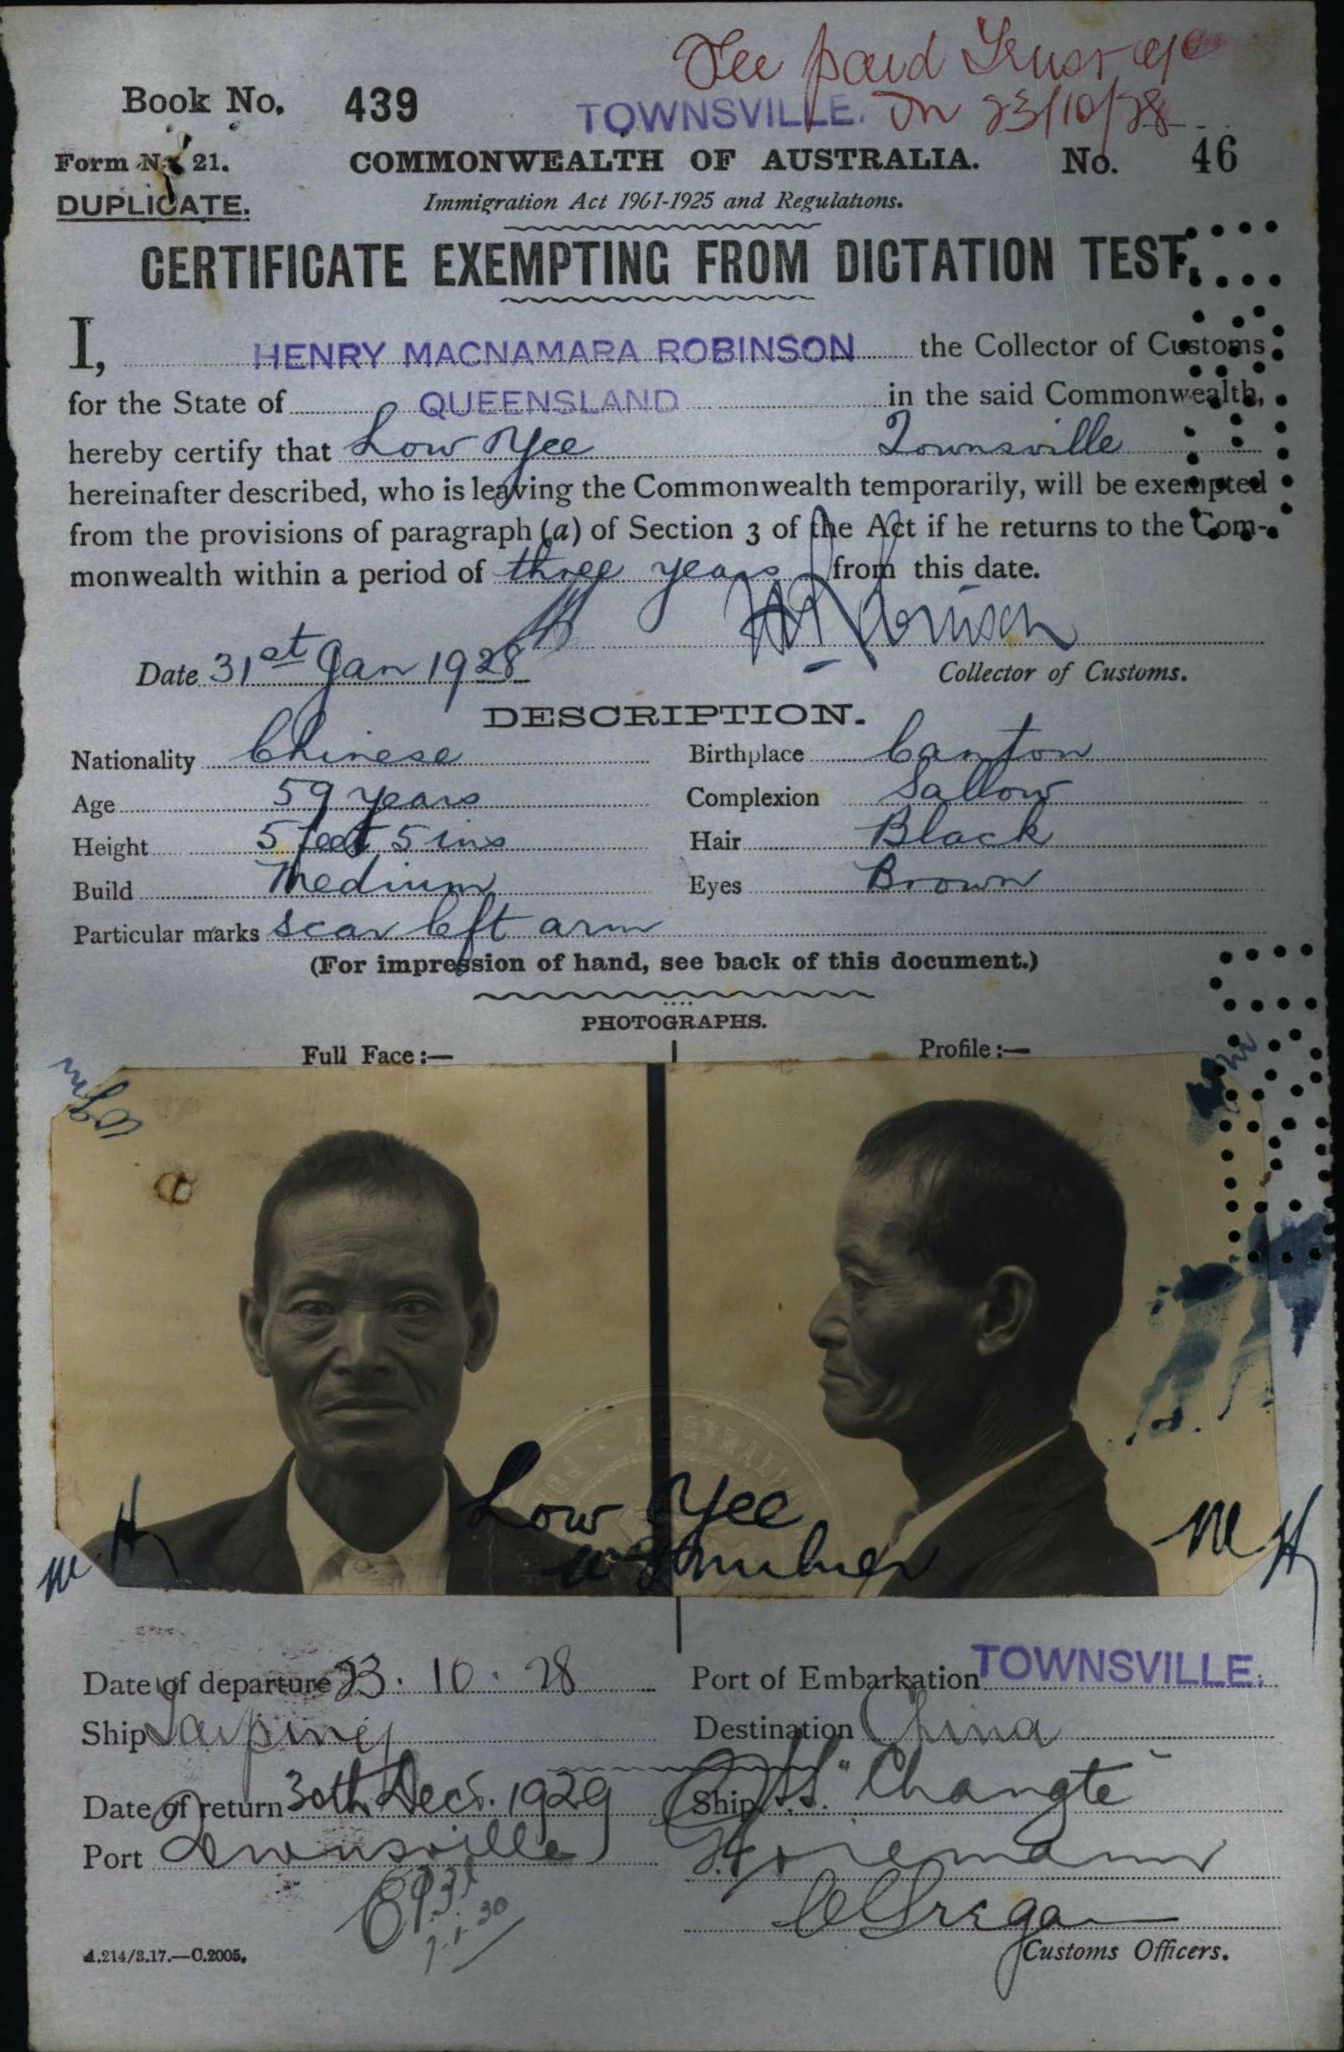 Fee paid Trust a/c
Book No. 439 TOWNSVILLE. On 23/10/28
Form No. 21. COMMONWEALTH OF AUSTRALIA. No. 46
DUPLICATE. Immigration Act 1901-1925 and Regulations.
CERTIFICATE EXEMPTING FROM DICTATION TEST.
I, HENRY MACNAMARA ROBINSON the Collector of Customs
for the State of QUEENSLAND in the said Commonwealth,
hereby certify that Low Yee Townsville
hereinafter described, who is leaving the Commonwealth temporarily, will be exempted
from the provisions of paragraph (a) of Section 3 of the Act if he returns to the Com-
monwealth within a period of three years from this date.
Robinson
Date 31st Jan 1928 Collector of Customs.
DESCRIPTION.
Nationality Chinese Birthplace Canton
Age 59 years Complexion Sallow
Height 5 feet 5 ins Hair Black
Build Medium Eyes Brown
Particular marks scar left arm
(For impression of hand, see back of this document.)
PHOTOGRAPHS.
Full Face:— Profile:—
Low Yee
Date of departure 23.10.28 Port of Embarkation TOWNSVILLE.
Ship Taiping Destination China
Date of return 30th Decr. 1929 Ship S.S. "Changte"
Port Townsville
7.1.30
Customs Officers.
A.214/3.17.—C.2005.